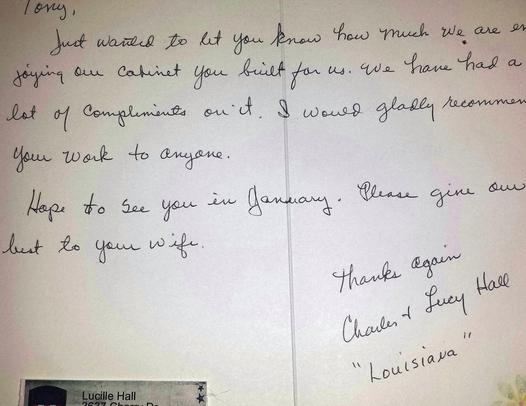 Tony,
Just wanted to let you know how much we are en
joying our cabinet you built for us. We have had a
lot of compliments on it. I would gladly recommen
your work to anyone.
Hope to see you in January. Please give our
best to your wife.
Thanks again
Charles + Lucy Hall
"Louisiana"
Lucille Hall
2637 Cherry